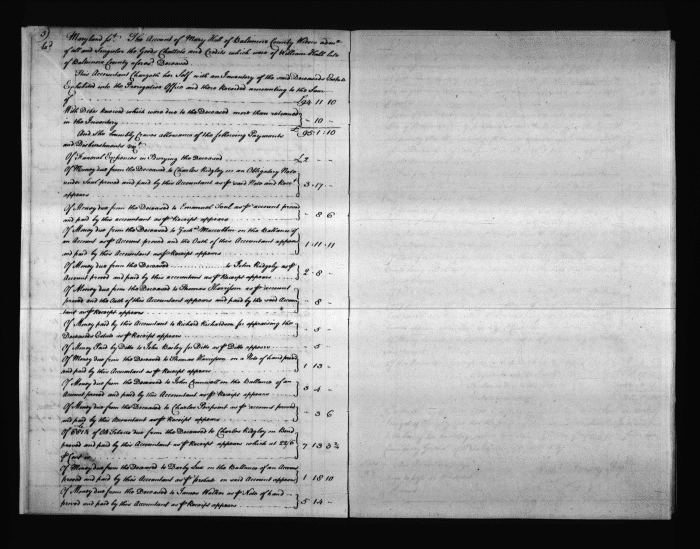 Maryland ss. The Account of Mary Hall of Baltimore County Widow adm.x
of all and Singular the Goods Chattels and Credits which were of William Hall late
of Baltimore County afores.d Deceased
This Accountant Chargeth her Self with an Inventory of the said Deceaseds Estate
Exhibited into the Prerogative Office and there Recorded amounting to the Sum
of £94 11 10
With Debts Received which were due to the Deceased more than returned
in the Inventory - 10 -
£95 1 10
And She humbly Craves allowance of the following Payments
and Disbursments viz.t
Of Funeral Expences in Burying the Deceased £2 - -
Of Money due from the Deceased to Charles Ridgley on an Obligatory Note
under Seal proved and paid by this Accountant as p said Note and Rec.t
appears 3 17 -
Of Money due from the Deceased to Emanuel Teal as p account proved
and paid by this accountant as p Receipt appears - 8 6
Of Money due from the Deceased to Zach.a Maccubbin on the Ballance of
an Account as p Account proved and the Oath of this Accountant appears
and paid by this accountant as p Receipt appears 1 11 11
Of Money due from the Deceased to John Ridgely as p
Account proved and paid by this accountant as p Receipt appears 2 8 -
Of Money due from the Deceased to Thomas Harrison as p account
proved and the Oath of this Accountant appears and paid by the said Accoun
tant as p Receipt appears - 8 -
Of Money paid by this Accountant to Richard Richardson for appraising the
Deceaseds Estate as p Receipt appears - 5 -
Of Money Paid by Ditto to John Bailey for Ditto as p Ditto appears - 5 -
Of Money due from the Deceased to Thomas Harrisson on a Note of hand proved
and paid by this Accountant as p Receipt appears 1 13 -
Of Money due from the Deceased to John Cromwell on the Ballance of an
Account proved and paid by this Accountant as p Receipt appears 3 4 -
Of Money due from the Deceased to Charles Pierpoint as p account proved
and paid by this Accountant as p Receipt appears - 3 6
of Tobacco due from the Deceased to Charles Ridgley on Bond
proved and paid by this Accountant as p Receipt appears which at 22/6
p Cent is 7 13 3¾
Of Money due from the Deceased to Darby Lux on the Ballance of an Account
proved and paid by this Accountant as p probate on said Account appears 1 18 10
Of Money due from the Deceased to James Walker as p Note of hand
proved and paid by this Accountant as p Receipt appears 5 14 -